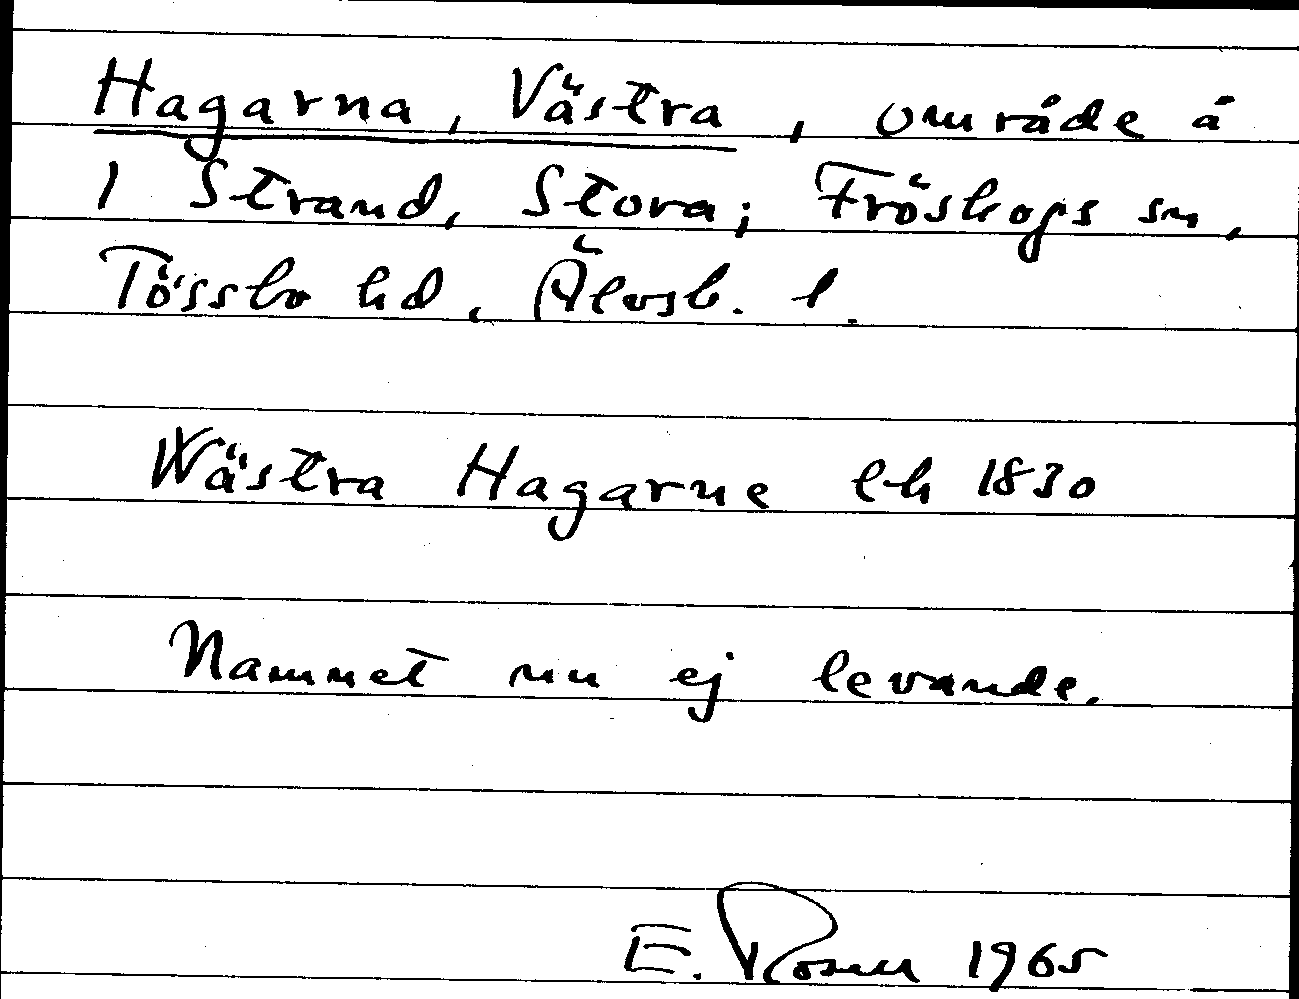 Hagarna, Västra, område å
1 Strand, Stora; Fröskogs sn,
Tössbo hd, Älvsb. l.
Wästra Hagarne lh 1830
Namnet nu ej levande.
E. Rosén 1965